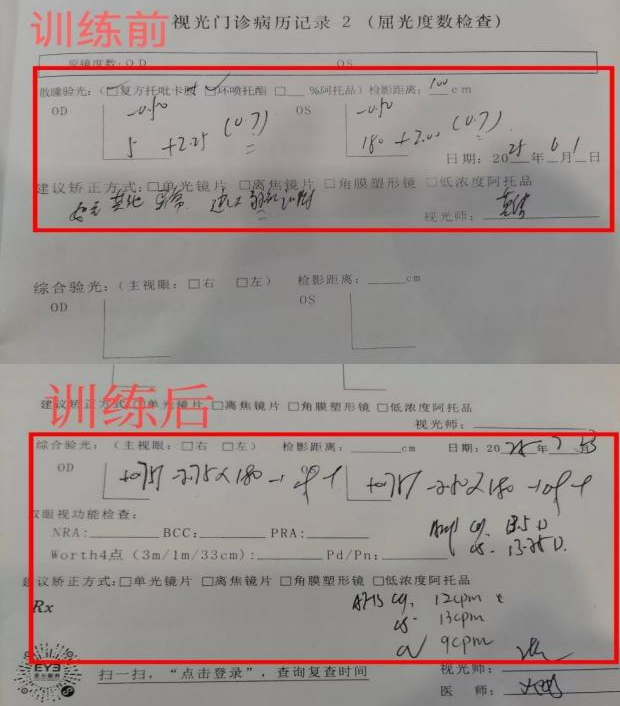 训练前
视光门诊病历记录 2 (屈光度数检查)
原镜度数: OD OS
散瞳验光: (□复方托吡卡胺 □环喷托酯 □___ %阿托品) 检影距离: 100 cm
OD -0.50 OS -0.50
5 +2.25 (0.7) 180 +2.00 (0.7)
日期: 2025年6月1日
建议矫正方式: □单光镜片 □离焦镜片 □角膜塑形镜 □低浓度阿托品
视光师:
综合验光: (主视眼: □右 □左) 检影距离: ____cm
OD OS
建议矫正方式 □单光镜片 □离焦镜片 □角膜塑形镜 □低浓度阿托品
训练后
视光师:
综合验光: (主视眼: □右 □左) 检影距离: ____cm 日期: 2025年7月
OD OS
+0.75/-2.75×180→ +0.75/-2.50×180→
双眼视功能检查:
NRA: BCC: PRA:
13.5D
Worth4点 (3m/1m/33cm): Pd/Pn: 13.25D.
建议矫正方式: □单光镜片 □离焦镜片 □角膜塑形镜 □低浓度阿托品
Rx 12cpm
13cpm
9cpm
EYE
扫一扫,“点击登录”, 查询复查时间
视光师:
医 师: